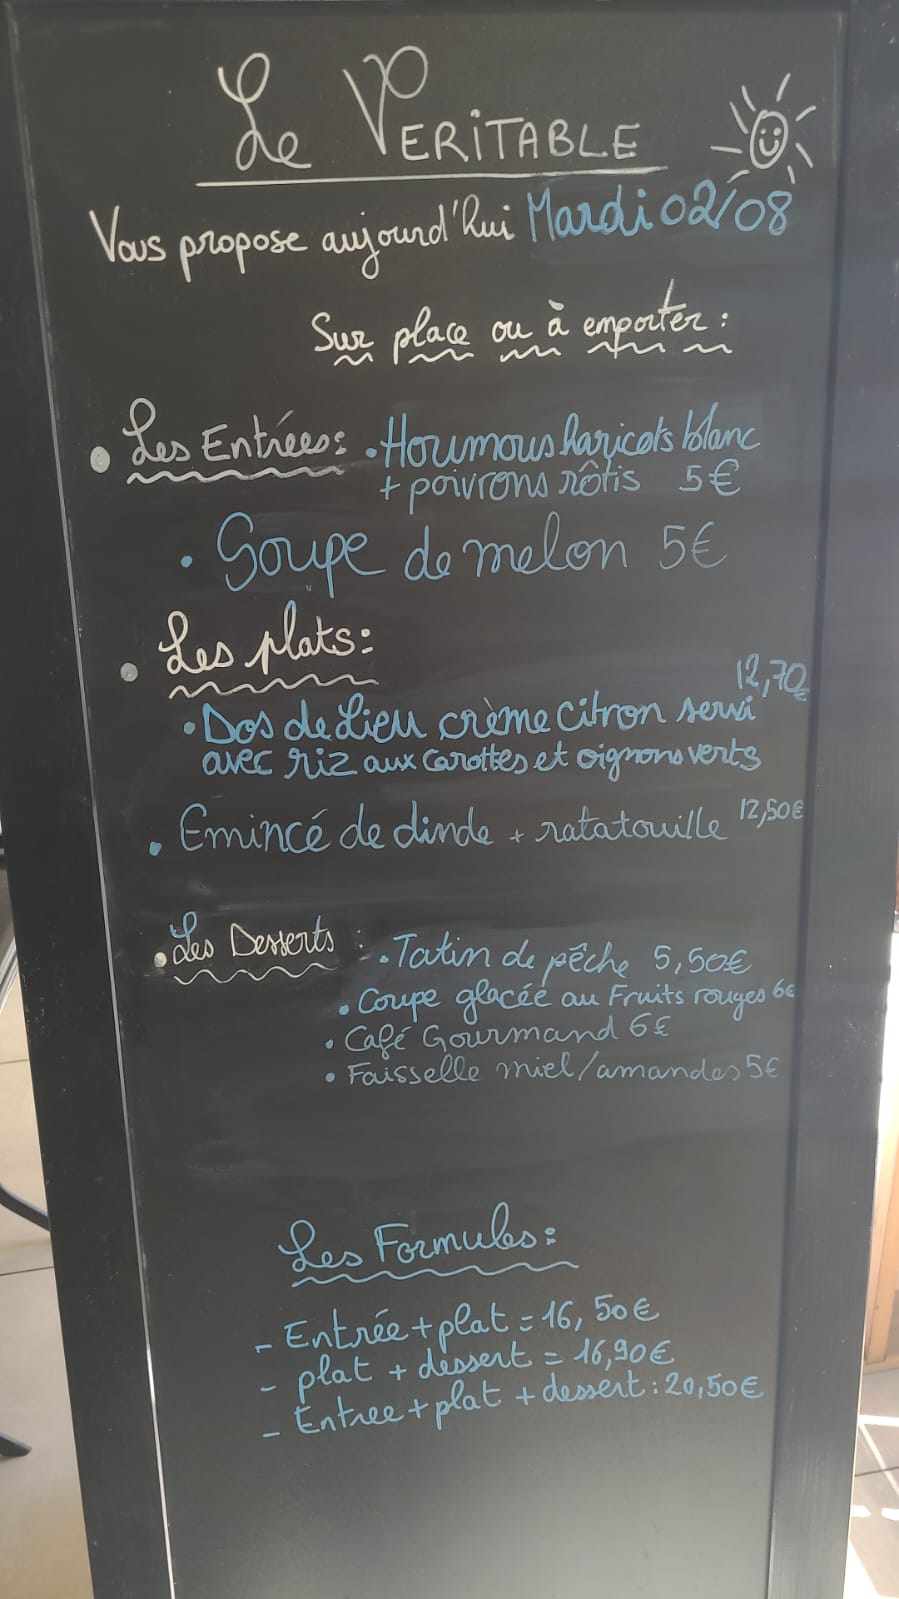 Le VERITABLE
Vous propose aujourd'hui Mardi 02/08
Sur place ou à emporter :
• Les Entrées : • Houmous haricots blanc
+ poivrons rôtis 5€
• Soupe de melon 5€
• Les plats :
12,70€
• Dos de Lieu crème citron servi
avec riz aux carottes et oignons verts
• Emincé de dinde + ratatouille 12,50€
• Les Desserts : • Tatin de pêche 5,50€
• Coupe glacée au Fruits rouges 6€
• Café Gourmand 6€
• Faisselle miel/amandes 5€
Les Formules :
- Entrée + plat = 16,50€
- plat + dessert = 16,90€
- Entree + plat + dessert : 20,50€